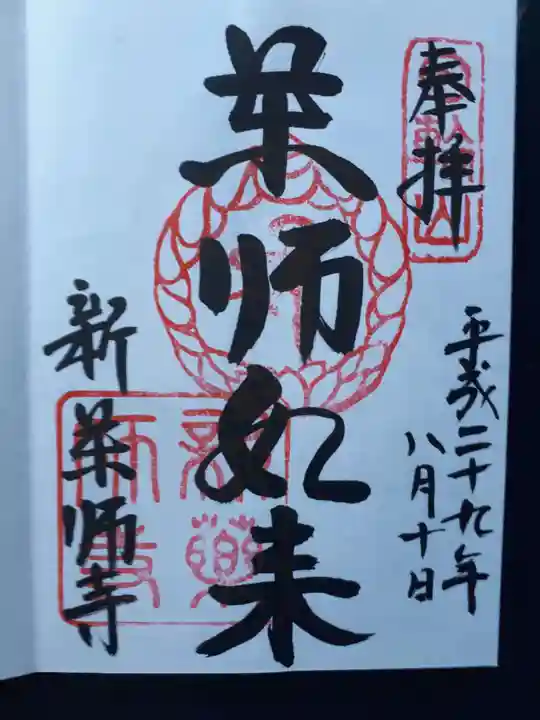 奉拝
平成二十九年
八月十日
薬師如来
新薬師寺